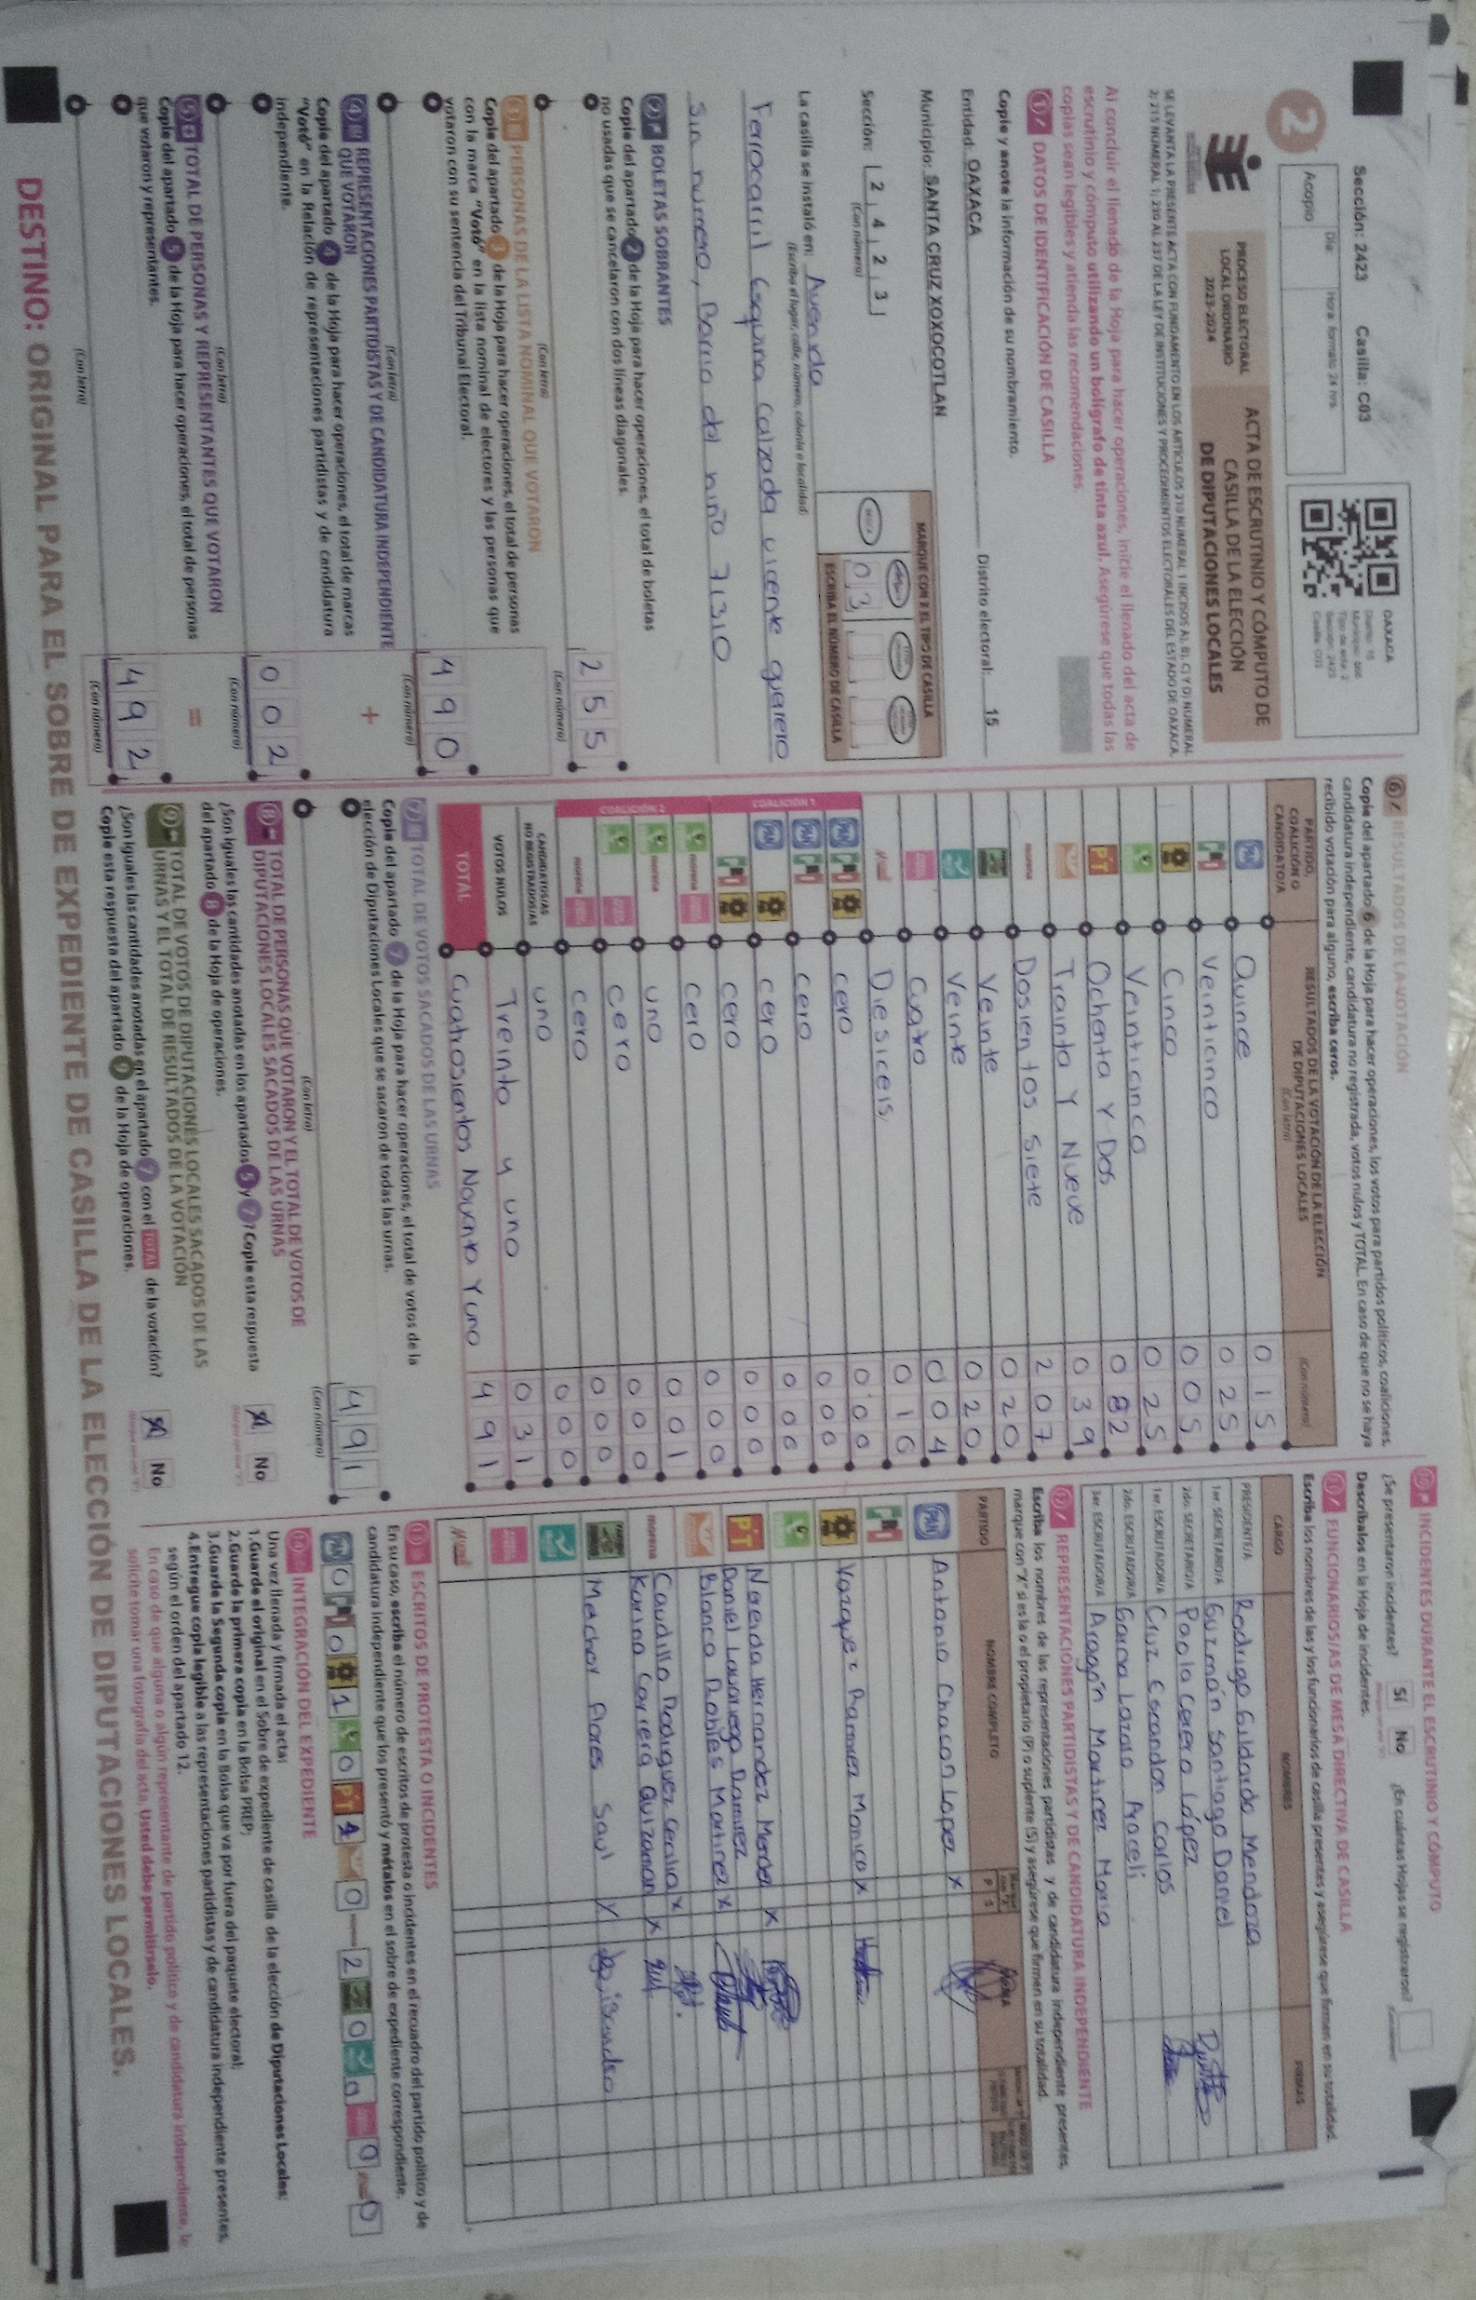 Sección: 2423 Casilla: C03
Día: Hora: formato 24 hrs.
Acopio
2
PROCESO ELECTORAL
LOCAL ORDINARIO
2023-2024
ACTA DE ESCRUTINIO Y CÓMPUTO DE
CASILLA DE LA ELECCIÓN
DE DIPUTACIONES LOCALES
OAXACA
SE LEVANTA LA PRESENTE ACTA CON FUNDAMENTO EN LOS ARTÍCULOS 213 NUMERAL 1 INCISOS A), B), C) Y D) NUMERAL
2; 215 NUMERAL 1; 230 AL 237 DE LA LEY DE INSTITUCIONES Y PROCEDIMIENTOS ELECTORALES DEL ESTADO DE OAXACA.
Al concluir el llenado de la Hoja para hacer operaciones, inicie el llenado del acta de
escrutinio y cómputo utilizando un bolígrafo de tinta azul. Asegúrese que todas las
copias sean legibles y atienda las recomendaciones.
1 DATOS DE IDENTIFICACIÓN DE CASILLA
Copie y anote la información de su nombramiento.
Entidad: OAXACA Distrito electoral: 15
Municipio: SANTA CRUZ XOXOCOTLAN
Sección: 2 4 2 3
(Con número)
MARQUE CON X EL TIPO DE CASILLA
ESCRIBA EL NÚMERO DE CASILLA
0 3
La casilla se instaló en: Avenida
(Escriba el lugar, calle, número, colonia o localidad)
Ferrocarril Esquina Calzada vicente guerrero
Sin numero, Barrio del niño 71310
2 BOLETAS SOBRANTES
Copie del apartado 2 de la Hoja para hacer operaciones, el total de boletas
no usadas que se cancelaron con dos líneas diagonales.
255
(Con letra) (Con número)
3 PERSONAS DE LA LISTA NOMINAL QUE VOTARON
Copie del apartado 3 de la Hoja para hacer operaciones, el total de personas
con la marca "Votó" en la lista nominal de electores y las personas que
votaron con su sentencia del Tribunal Electoral.
490
(Con letra) (Con número)
+
4 REPRESENTACIONES PARTIDISTAS Y DE CANDIDATURA INDEPENDIENTE
QUE VOTARON
Copie del apartado 4 de la Hoja para hacer operaciones, el total de marcas
"Votó" en la Relación de representaciones partidistas y de candidatura
independiente.
002
(Con letra) (Con número)
=
5 TOTAL DE PERSONAS Y REPRESENTANTES QUE VOTARON
Copie del apartado 5 de la Hoja para hacer operaciones, el total de personas
que votaron y representantes.
492
(Con letra) (Con número)
6 RESULTADOS DE LA VOTACIÓN
Copie del apartado 6 de la Hoja para hacer operaciones, los votos para partidos políticos, coaliciones,
candidatura independiente, candidatura no registrada, votos nulos y TOTAL. En caso de que no se haya
recibido votación para alguno, escriba ceros.
PARTIDO,
COALICIÓN O
CANDIDATO/A
RESULTADOS DE LA VOTACIÓN DE LA ELECCIÓN
DE DIPUTACIONES LOCALES
(Con letra) (Con número)
PAN Quince 015
PRI Veinticinco 025
PRD Cinco 005
Veinticinco 025
PT Ochenta Y Dos 082
Trainta Y Nueve 039
morena Dosientos Siete 207
Veinte 020
Veinte 020
Cuatro 004
Diesiceis 016
COALICIÓN 1
cero 000
cero 000
cero 000
cero 000
COALICIÓN 2
morena cero 000
morena uno 001
cero 000
morena cero 000
CANDIDATOS/AS
NO REGISTRADOS/AS uno 000
VOTOS NULOS Treinta y uno 031
TOTAL Cuatrosientos Noventa Y uno 491
7 TOTAL DE VOTOS SACADOS DE LAS URNAS
Copie del apartado 7 de la Hoja para hacer operaciones, el total de votos de la
elección de Diputaciones Locales que se sacaron de todas las urnas.
491
(Con letra) (Con número)
8 TOTAL DE PERSONAS QUE VOTARON Y EL TOTAL DE VOTOS DE
DIPUTACIONES LOCALES SACADOS DE LAS URNAS
¿Son iguales las cantidades anotadas en los apartados 5 y 7? Copie esta respuesta
del apartado 8 de la Hoja de operaciones.
No
9 TOTAL DE VOTOS DE DIPUTACIONES LOCALES SACADOS DE LAS
URNAS Y EL TOTAL DE RESULTADOS DE LA VOTACIÓN
¿Son iguales las cantidades anotadas en el apartado 7 con el TOTAL de la votación?
Copie esta respuesta del apartado 9 de la Hoja de operaciones.
No
10 INCIDENTES DURANTE EL ESCRUTINIO Y CÓMPUTO
¿Se presentaron incidentes? Sí No ¿En cuántas Hojas se registraron?
Descríbalos en la Hoja de incidentes.
11 FUNCIONARIOS/AS DE MESA DIRECTIVA DE CASILLA
Escriba los nombres de las y los funcionarios de casilla presentes y asegúrese que firmen en su totalidad.
CARGO NOMBRES FIRMAS
PRESIDENTE/A Rodrigo Gildardo Mendoza
1er. SECRETARIO/A Guzmán Santiago Daniel
2do. SECRETARIO/A Paola Carera López
1er. ESCRUTADOR/A Cruz Escandon Carlos
2do. ESCRUTADOR/A Garcia Lazaro Araceli
3er. ESCRUTADOR/A Aragón Martinez Maria
12 REPRESENTACIONES PARTIDISTAS Y DE CANDIDATURA INDEPENDIENTE
Escriba los nombres de las representaciones partidistas y de candidatura independiente presentes,
marque con "X" si es la o el propietario (P) o suplente (S) y asegúrese que firmen en su totalidad.
PARTIDO NOMBRE COMPLETO P S FIRMA
PAN Antonio Chacon Lopez X
PRD Vazquez Ramirez Monica X
PT Noeida Hernandez Mendez X
Daniel Lavariega Ramirez
Blanca Robles Martinez X
morena Caudillo Rodriguez Cecilia X
Karina Carrera Quizaman X
Melchor Flores Saul X
13 ESCRITOS DE PROTESTA O INCIDENTES
En su caso, escriba el número de escritos de protesta o incidentes en el recuadro del partido político y de
candidatura independiente que los presentó y métalos en el sobre de expediente correspondiente.
0 0 1 0 1 0 2 0 0 0 0
14 INTEGRACIÓN DEL EXPEDIENTE
Una vez llenada y firmada el acta:
1.Guarde el original en el Sobre de expediente de casilla de la elección de Diputaciones Locales;
2.Guarde la primera copia en la Bolsa PREP;
3.Guarde la Segunda copia en la Bolsa que va por fuera del paquete electoral;
4.Entregue copia legible a las representaciones partidistas y de candidatura independiente presentes,
según el orden del apartado 12.
En caso de que alguna o algún representante de partido político y de candidatura independiente, le
solicite tomar una fotografía del acta, Usted debe permitírselo.
DESTINO: ORIGINAL PARA EL SOBRE DE EXPEDIENTE DE CASILLA DE LA ELECCIÓN DE DIPUTACIONES LOCALES.